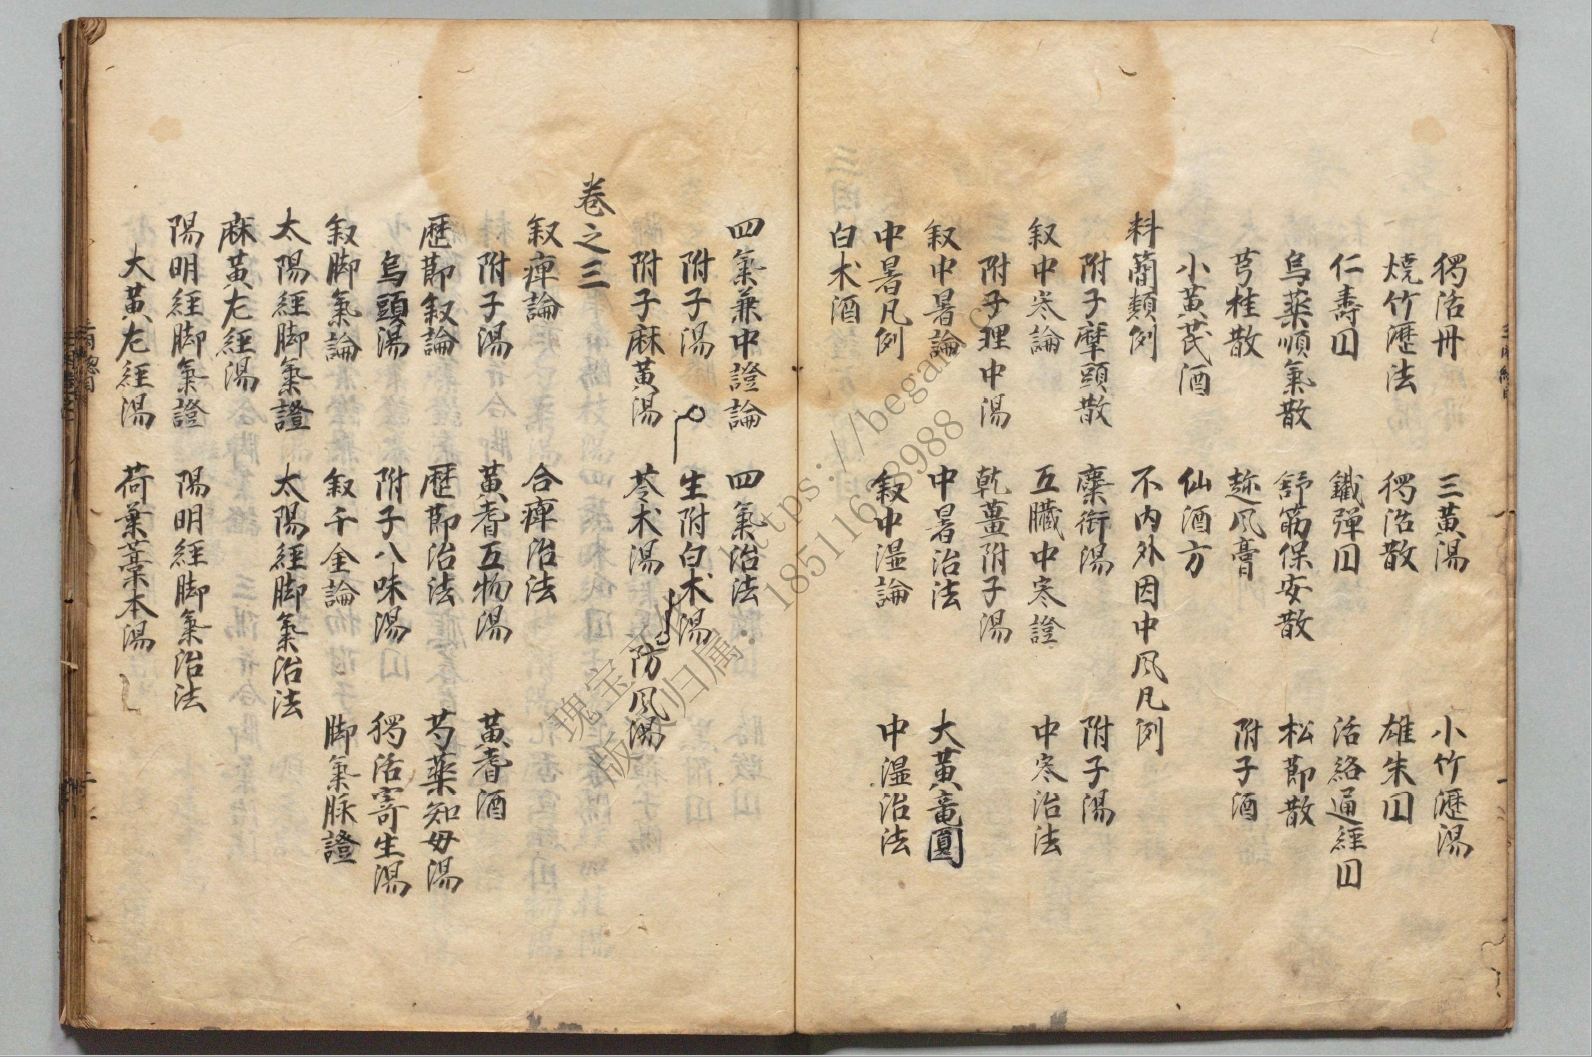 獨活丹 三黃湯 小竹瀝湯
燒竹瀝法 獨活散 雄朱囝
仁壽囝 鐵彈囝 活絡通經囝
烏藥順氣散 舒筋保安散 松節散
芎桂散 趂風膏 附子酒
小黃芪酒 仙酒方
料簡類例 不內外因中風凡例
附子摩頭散 麋銜湯 附子湯
叙中寒論 五臟中寒證 中寒治法
附子理中湯 乾薑附子湯
叙中暑論 中暑治法 大黃竜圓
中暑凡例 叙中湿論 中湿治法
白朮酒
四氣兼中證論 四氣治法
附子湯 生附白朮湯
附子麻黃湯 苓朮湯 防風湯
卷之三
叙痺論 合痺治法
附子湯 黃耆五物湯 黃耆酒
歷節叙論 歷節治法 芍藥知母湯
烏頭湯 附子八味湯 獨活寄生湯
叙脚氣論 叙千金論 脚氣脉證
太陽經脚氣證 太陽經脚氣治法
麻黃左經湯
陽明經脚氣證 陽明經脚氣治法
大黃左經湯 荷葉藁本湯
https://began.c
18511698988
版权归属